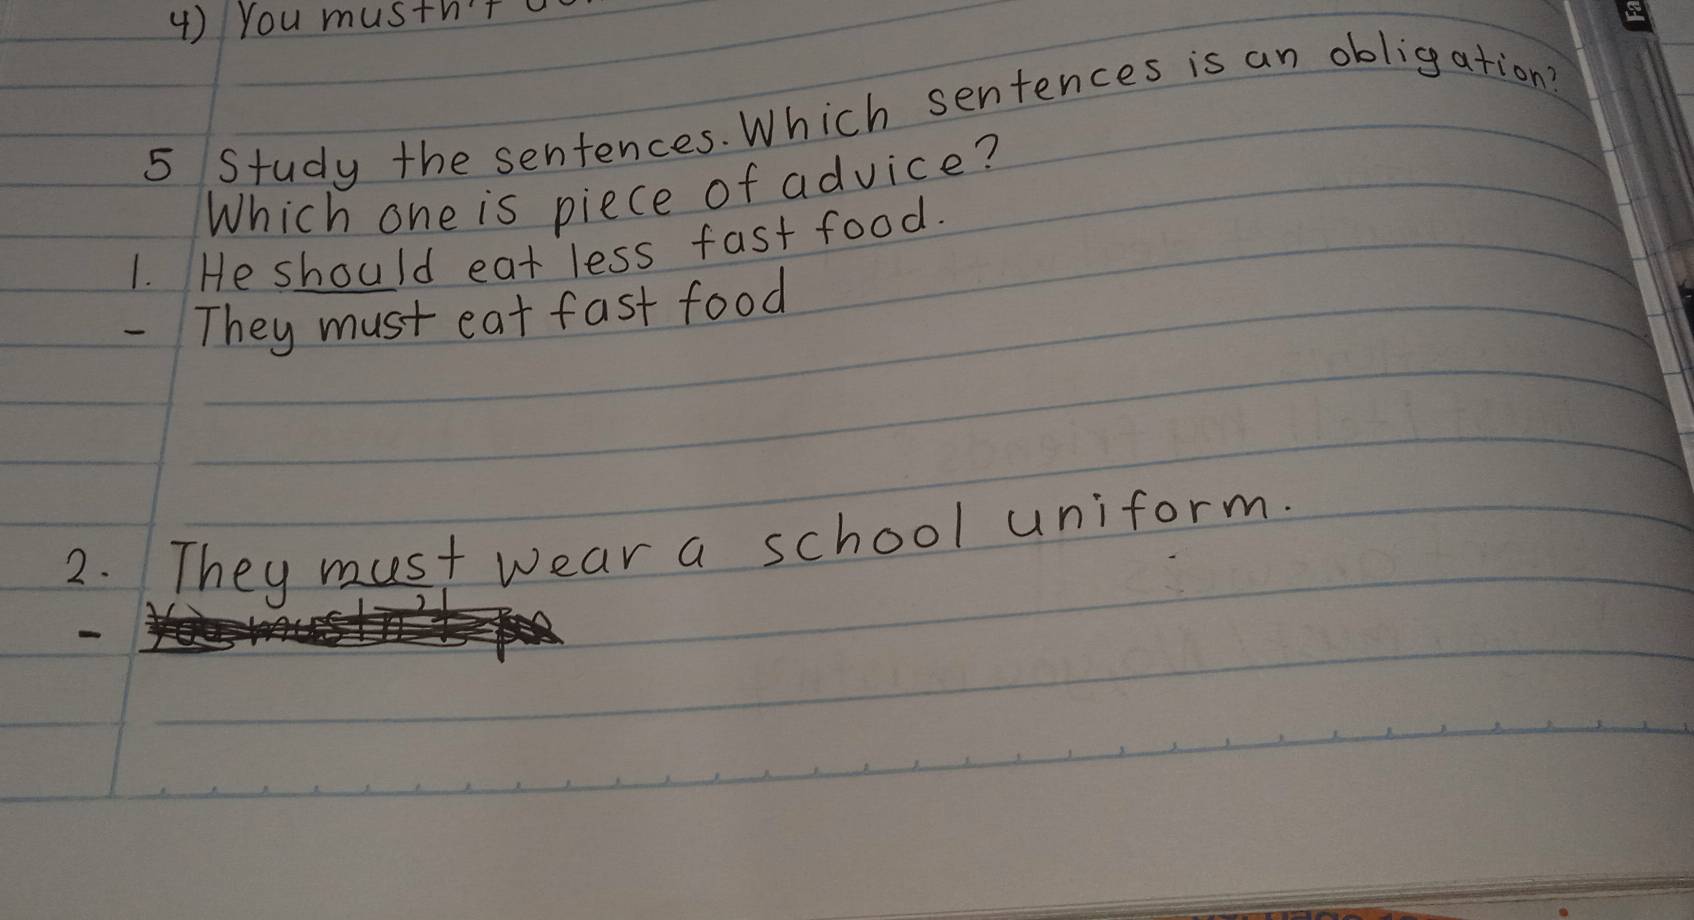 4) You musthn't
5 Study the sentences. Which sentences is an obligation?
Which one is piece of advice?
1. He should eat less fast food.
- They must eat fast food
2. They must wear a school uniform.
- You mustn't
Fa